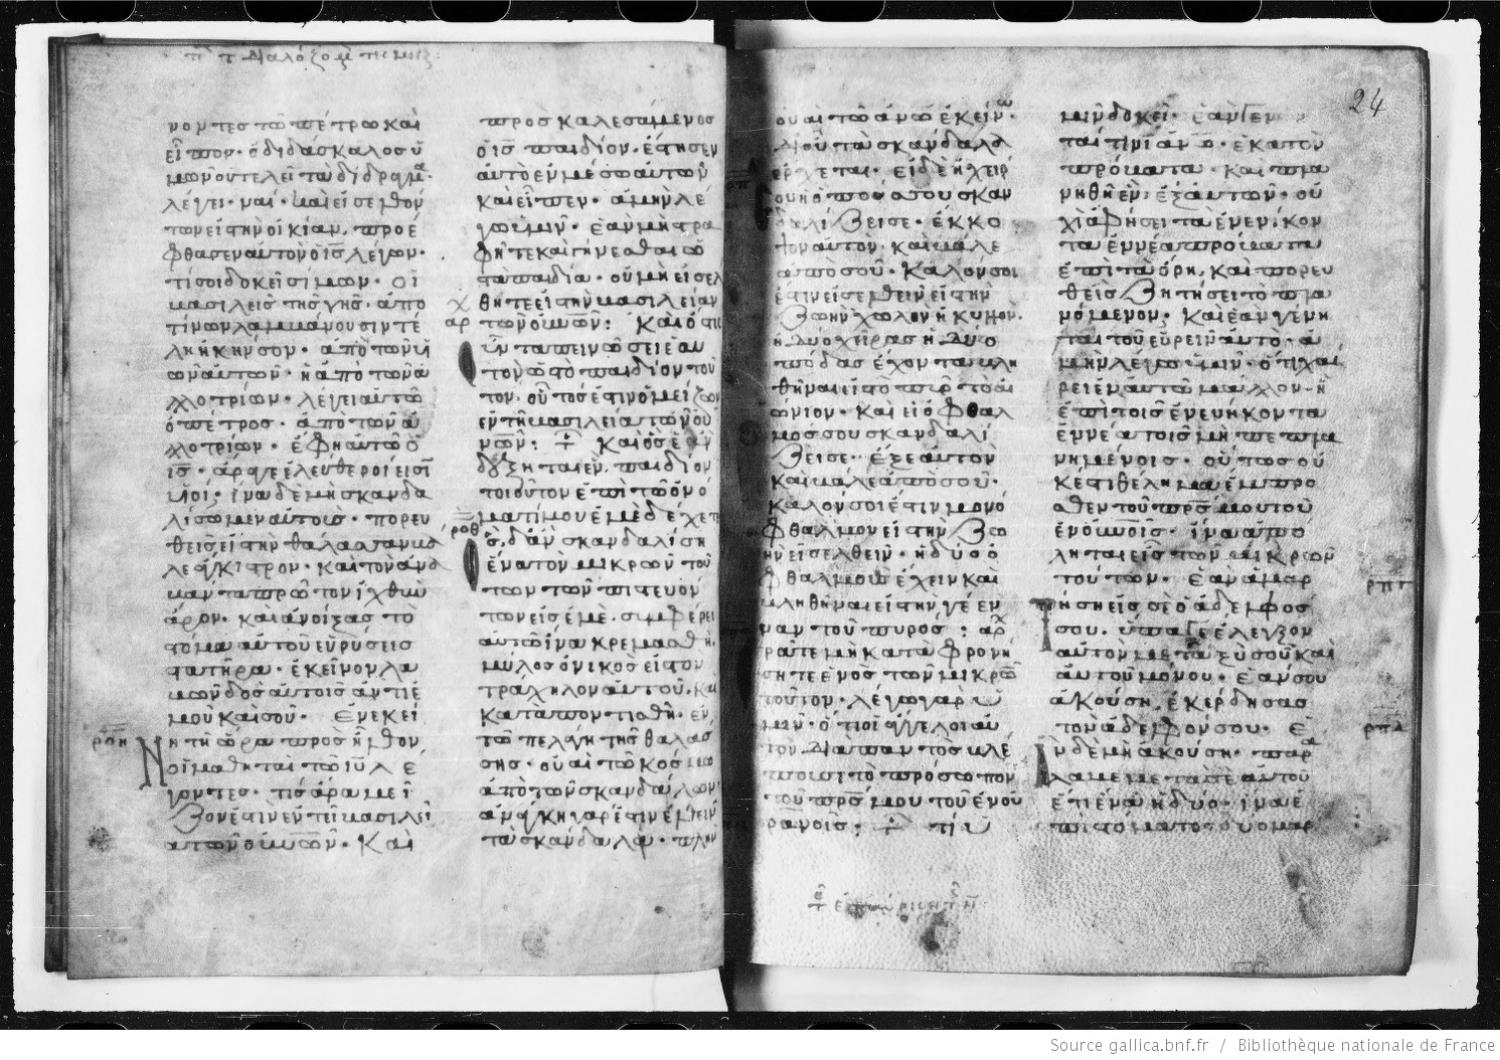 νοντες τῶ πέτρω και
εἶπον· ὁ διδάσκαλος ὑ
μῶν οὐ τελεῖ τὰ δίδραχμα·
λέγει· ναί· και εἰσελθον
των εἰς την οἰκίαν, προέ
φθασεν αὐτὸν ὁ ις λέγων·
τί σοι δοκεῖ σίμων· οἱ
βασιλεις τῆς γῆς· ἀπο
τίνων λαμβάνουσιν τέ
λη ἢ κῆνσον· ἀπο τῶν υἱ
ῶν αὐτῶν· ἢ ἀπὸ τῶν ἀ
λλοτρίων· λέγει αὐτῶ
ὁ πέτρος· ἀπὸ τῶν ἀ
λλοτρίων· ἔφη αὐτῶ ὁ
ις· ἄραγε ἐλεύθεροι εἰσῖ
υἱοί· ἵνα δὲ μη σκανδα
λίσωμεν αὐτοις· πορευ
θεις εἰς την θάλασσαν
βάλε ἄγκιστρον· και τον ἀνα
βαντα πρῶτον ἰχθὺν
ἆρον· και ἀνοίξας τὸ
στόμα αὐτοῦ εὑρήσεις
στατῆρα· ἐκεῖνον λα
βων δος αὐτοις ἀντι ἐ
μοῦ και σοῦ· Εν ἐκεί
νη τῆ ὥρα προσῆλθον
οἱ μαθηται τῶ ιυ λέ
γοντες· τίς ἄρα μεί
ζων ἐστιν ἐν τῆ βασιλεί
α τῶν οὐνῶν· Και
προσκαλεσάμενος
ὁ ις παιδίον· ἔστησεν
αὐτὸ ἐν μέσω αὐτῶν
και εἶπεν· ἀμην λέ
γω ὑμῖν· ἐαν μη στρα
φῆτε και γένησθε ὡς
τα παιδία· οὐ μη εἰσελ
θητε εἰς την βασιλείαν
τῶν οὐνῶν: Και ὅστις
οὖν ταπεινώσει ἑαυ
τον ὡς τὸ παιδίον τοῦ
τον· οὗτος ἐστιν ὁ μείζων
ἐν τῆ βασιλεία τῶν οὐ
νῶν: Και ὃς ἐὰν
δέξηται ἓν παιδίον
τοιοῦτον ἐπὶ τῶ ὀνό
ματί μου ἐμὲ δέχεται
ὃς δ' ἂν σκανδαλίση
ἕνα τῶν μικρῶν τού
των τῶν πιστευόν
των εἰς ἐμέ· συμφέρει
αὐτῶ ἵνα κρεμασθῆ
μύλος ὀνικος εἰς τον
τράχηλον αὐτοῦ, και
καταποντισθῆ· ἐν
τῶ πελάγει τῆς θαλάσ
σης· οὐαι τῶ κόσμω
ἀπὸ τῶν σκανδάλων
ἀνάγκη γάρ ἐστιν ἐλθεῖν
τα σκάνδαλα· πλην
24
οὐαι τῶ ἀνω ἐκείνω·
δι' οὗ το σκάνδαλον
ἔρχεται· εἰ δὲ ἡ χείρ
σου ἢ ὁ πούς σου σκαν
δαλίζει σε· ἔκκο
ψον αὐτον· και βάλε
ἀπὸ σοῦ· Καλον σοι
ἐστιν εἰσελθεῖν εἰς την
ζωην χωλον ἢ κυλλον·
ἢ δύο χεῖρας ἢ δύο
πόδας ἔχοντα βλη
θῆναι εἰς το πῦρ το αἰ
ώνιον· Και εἰ ὁ ὀφθαλ
μός σου σκανδαλί
ζει σε· ἔξελε αὐτον
και βάλε ἀπὸ σοῦ·
καλόν σοι ἐστιν μονό
φθαλμον εἰς την ζω
ην εἰσελθεῖν· ἢ δύο ὀ
φθαλμους ἔχειν και
βληθῆναι εἰς την γέεν
ναν τοῦ πυρός:
ὁρᾶτε μη καταφρονή
σητε ἑνὸς τῶν μικρῶ
τούτον· λέγω γαρ ὑ
μῖν· ὅτι οἱ ἄγγελοι αὐ
τῶν δια παντος βλέ
πουσι το πρόσωπον
τοῦ πρς μου τοῦ ἐν οὐ
ρανοῖς: τί ὑ
μῖν δοκεῖ· ἐαν γεν
ται τινὶ ανω· ἑκατὸν
πρόβατα· και πλα
νηθῆ ἓν ἐξ αὐτῶν· οὐ
χι ἀφήσει τα ἐνενήκον
τα ἐννέα πρόβατα
ἐπι τα ὄρη, και πορευ
θεις ζητήσει το πλα
νόμενον· Και ἐαν γένη
ται τοῦ εὑρεῖν αὐτο· ἀ
μην λέγω ὑμῖν· ὅτι χαί
ρει ἐν αὐτῶ μᾶλλον· ἢ
ἐπι τοις ἐνενήκοντα
ἐννέα τοις μη πεπλα
νημένοις· οὕτως οὐ
κ ἔστι θέλημα ἔμπρο
σθεν τοῦ πρς μου τοῦ
ἐν οὐνοῖς· ἵνα ἀπό
ληται εἷς τῶν μικρῶν
τούτων· Εαν ἁμαρ
τήση εἰς σε ὁ ἀδελφος
σου· ὕπαγε ἔλεγξον
αὐτον μεταξυ σοῦ και
αὐτοῦ μόνου· ἐαν σου
ἀκούση, ἐκέρδησας
τον ἀδελφόν σου· ἐ
αν δε μη ἀκούση· παρά
λαβε μετα σε αὐτοῦ
ἔτι ἕνα ἢ δύο· ἵνα ἐ
πι στόματος δύο μαρ
Source gallica.bnf.fr / Bibliothèque nationale de France